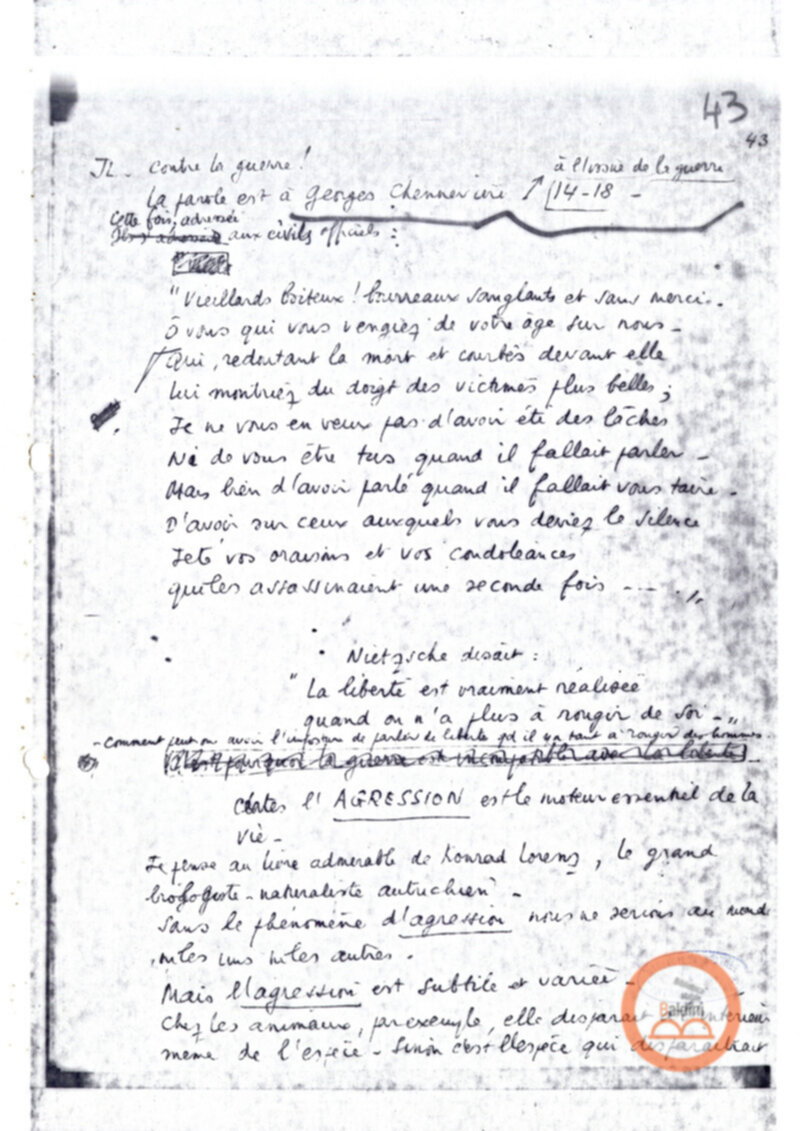 43
43
JL - Contre la guerre !
à l'issue de la guerre
La parole est à Georges Chennevière 14-18 -
Cette fois, adressée
aux civils officiels :
"Vieillards boiteux ! bourreaux sanglants et sans merci -
Ô vous qui vous vengiez de votre âge sur nous -
Qui, redoutant la mort et courbés devant elle
Lui montriez du doigt des victimes plus belles ;
Je ne vous en veux pas d'avoir été des lâches
Ni de vous être tus quand il fallait parler -
Mais bien d'avoir parlé quand il fallait vous taire -
D'avoir sur ceux auxquels vous deviez le silence
Jeté vos oraisons et vos condoléances
qui les assassinaient une seconde fois --- . "
Nietzsche disait :
"La liberté est vraiment réalisée
quand on n'a plus à rougir de soi - "
- Comment peut on avoir l'imposture de parler de liberté qd il y a tant à rougir des hommes -
C'est pourquoi la guerre est incompatible avec la liberté
Certes l'AGRESSION est le moteur essentiel de la
vie -
Je pense au livre admirable de Konrad Lorenz, le grand
biologiste - naturaliste autrichien -
Sans le phénomène d'agression nous ne serions au monde
ni les uns ni les autres .
Mais l'agression est subtile et variée -
Chez les animaux, par exemple, elle disparait intérieur
même de l'espèce - Sinon c'est l'espèce qui disparaitrait
Baldım